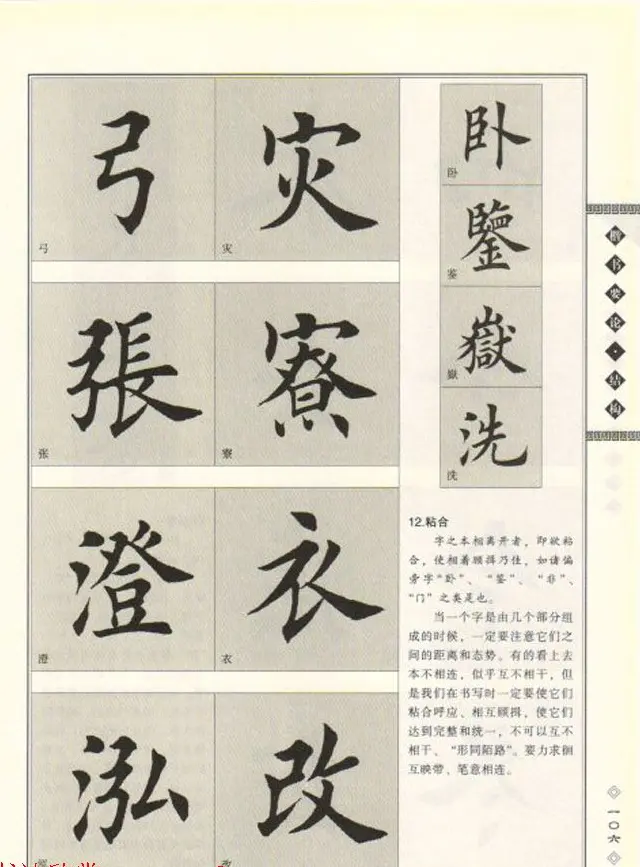 弓
灾
弓
灾
張
寮
张
寮
澄
衣
澄
衣
泓
改
卧
卧
鑒
鉴
嶽
嶽
洗
洗
12.粘合
字之本相离开者，即欲粘
合，使相着顾揖乃佳，如诸偏
旁字“卧”、“鉴”、“非”、
“门”之类是也。
当一个字是由几个部分组
成的时候，一定要注意它们之
间的距离和态势。有的看上去
本不相连，似乎互不相干，但
是我们在书写时一定要使它们
粘合呼应、相互顾揖，使它们
达到完整和统一，不可以互不
相干、“形同陌路”。要力求徊
互映带、笔意相连。
楷书要论·结构
一〇六